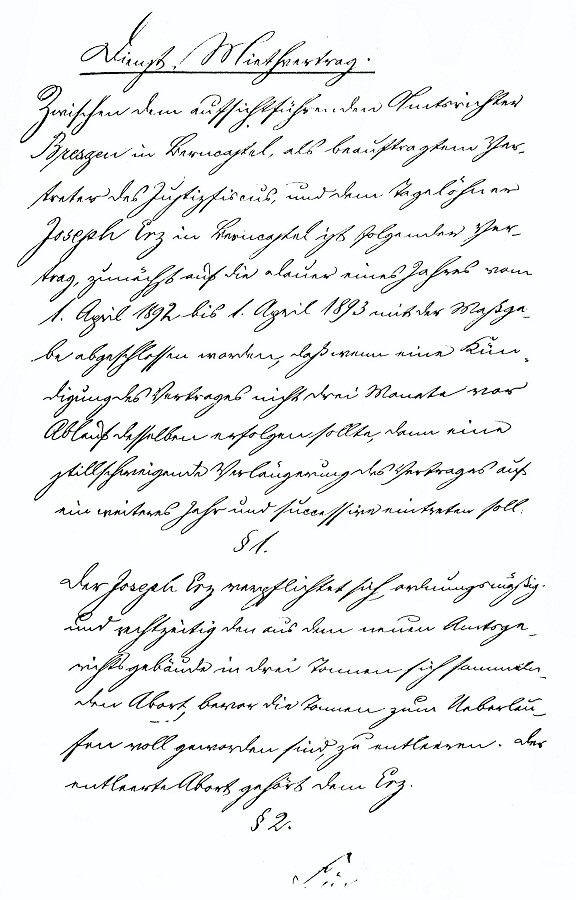 Dienst-Miethvertrag.
Zwischen dem aufsichtführenden Amtsrichter
Bresgen in Berncastel, als beauftragtem Ver-
treter des Justizfiscus, und dem Tagelöhner
Joseph Erz in Berncastel ist folgender Ver-
trag, zunächst auf die Dauer eines Jahres vom
1. April 1892 bis 1. April 1893 mit der Maßga-
be abgeschlossen worden, daß wenn eine Kün-
digung des Vertrages nicht drei Monate vor
Ablauf desselben erfolgen sollte, dann eine
stillschweigende Verlängerung des Vertrages auf
ein weiteres Jahr und successive eintreten soll.
§ 1.
Der Joseph Erz verpflichtet sich, ordnungsmäßig
und rechtzeitig den aus dem neuen Amtsge-
richtsgebäude in drei Tonnen sich sammeln-
den Abort, bevor die Tonnen zum Ueberlau-
fen voll geworden sind, zu entleeren. Der
entleerte Abort gehört dem Erz.
§ 2.
Für